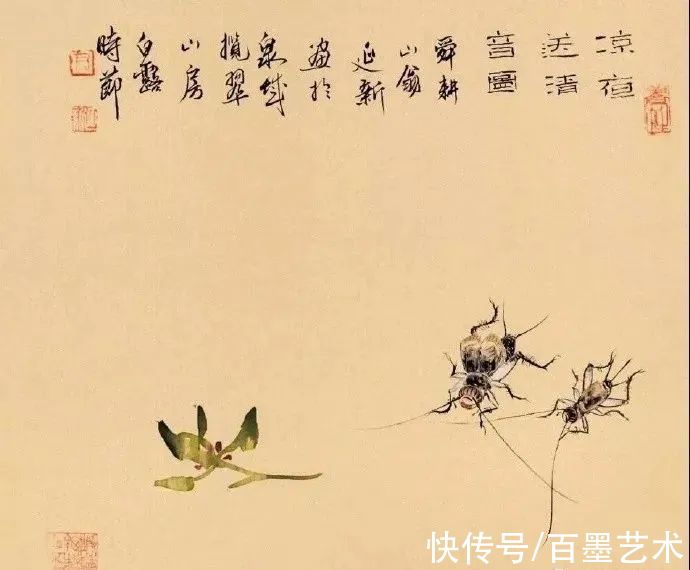 涼夜
送清
音圖
舜耕
山翁
延新
畫於
泉城
攬翠
山房
白露
時節
快传号/百墨艺术